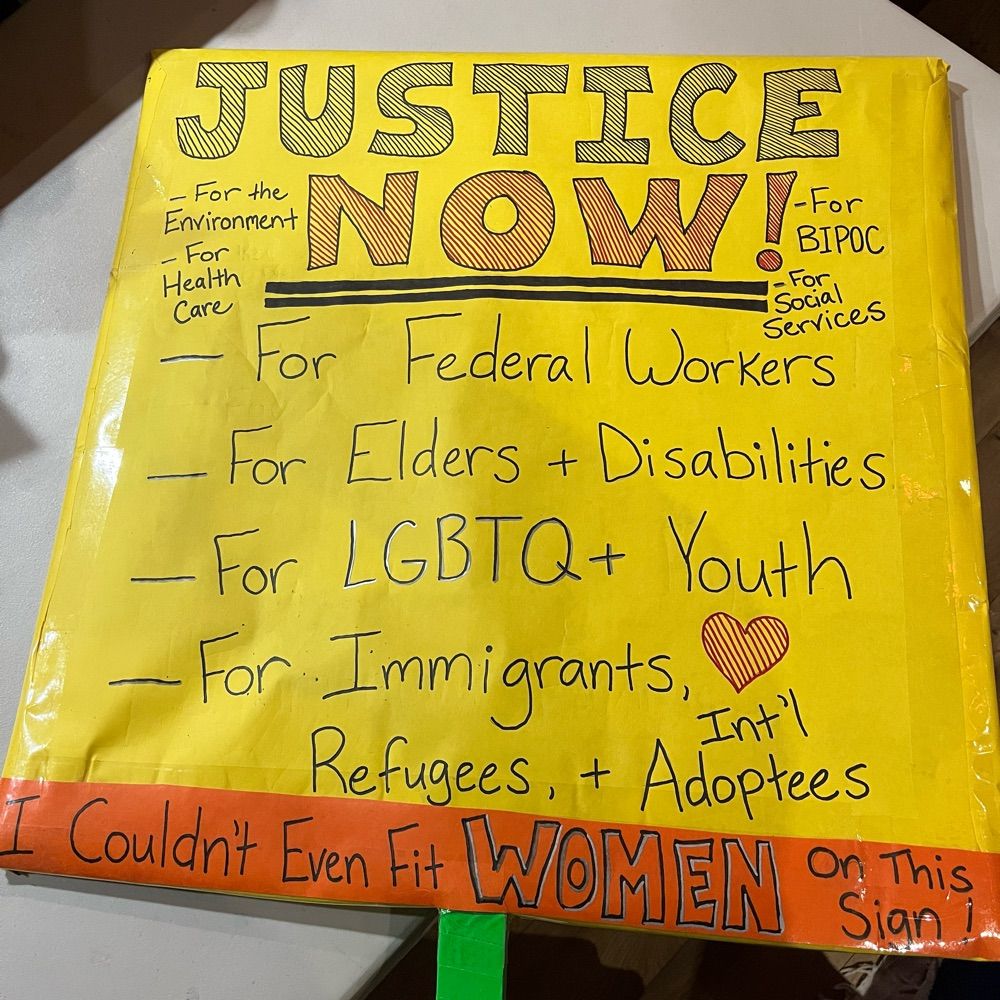 JUSTICE
NOW!
- For the
Environment
- For
Health
Care
- For
BIPOC
- For
Social
Services
- For Federal Workers
- For Elders + Disabilities
- For LGBTQ+ Youth
- For Immigrants,
Int'l
Refugees, + Adoptees
I Couldn't Even Fit WOMEN On This
Sign!